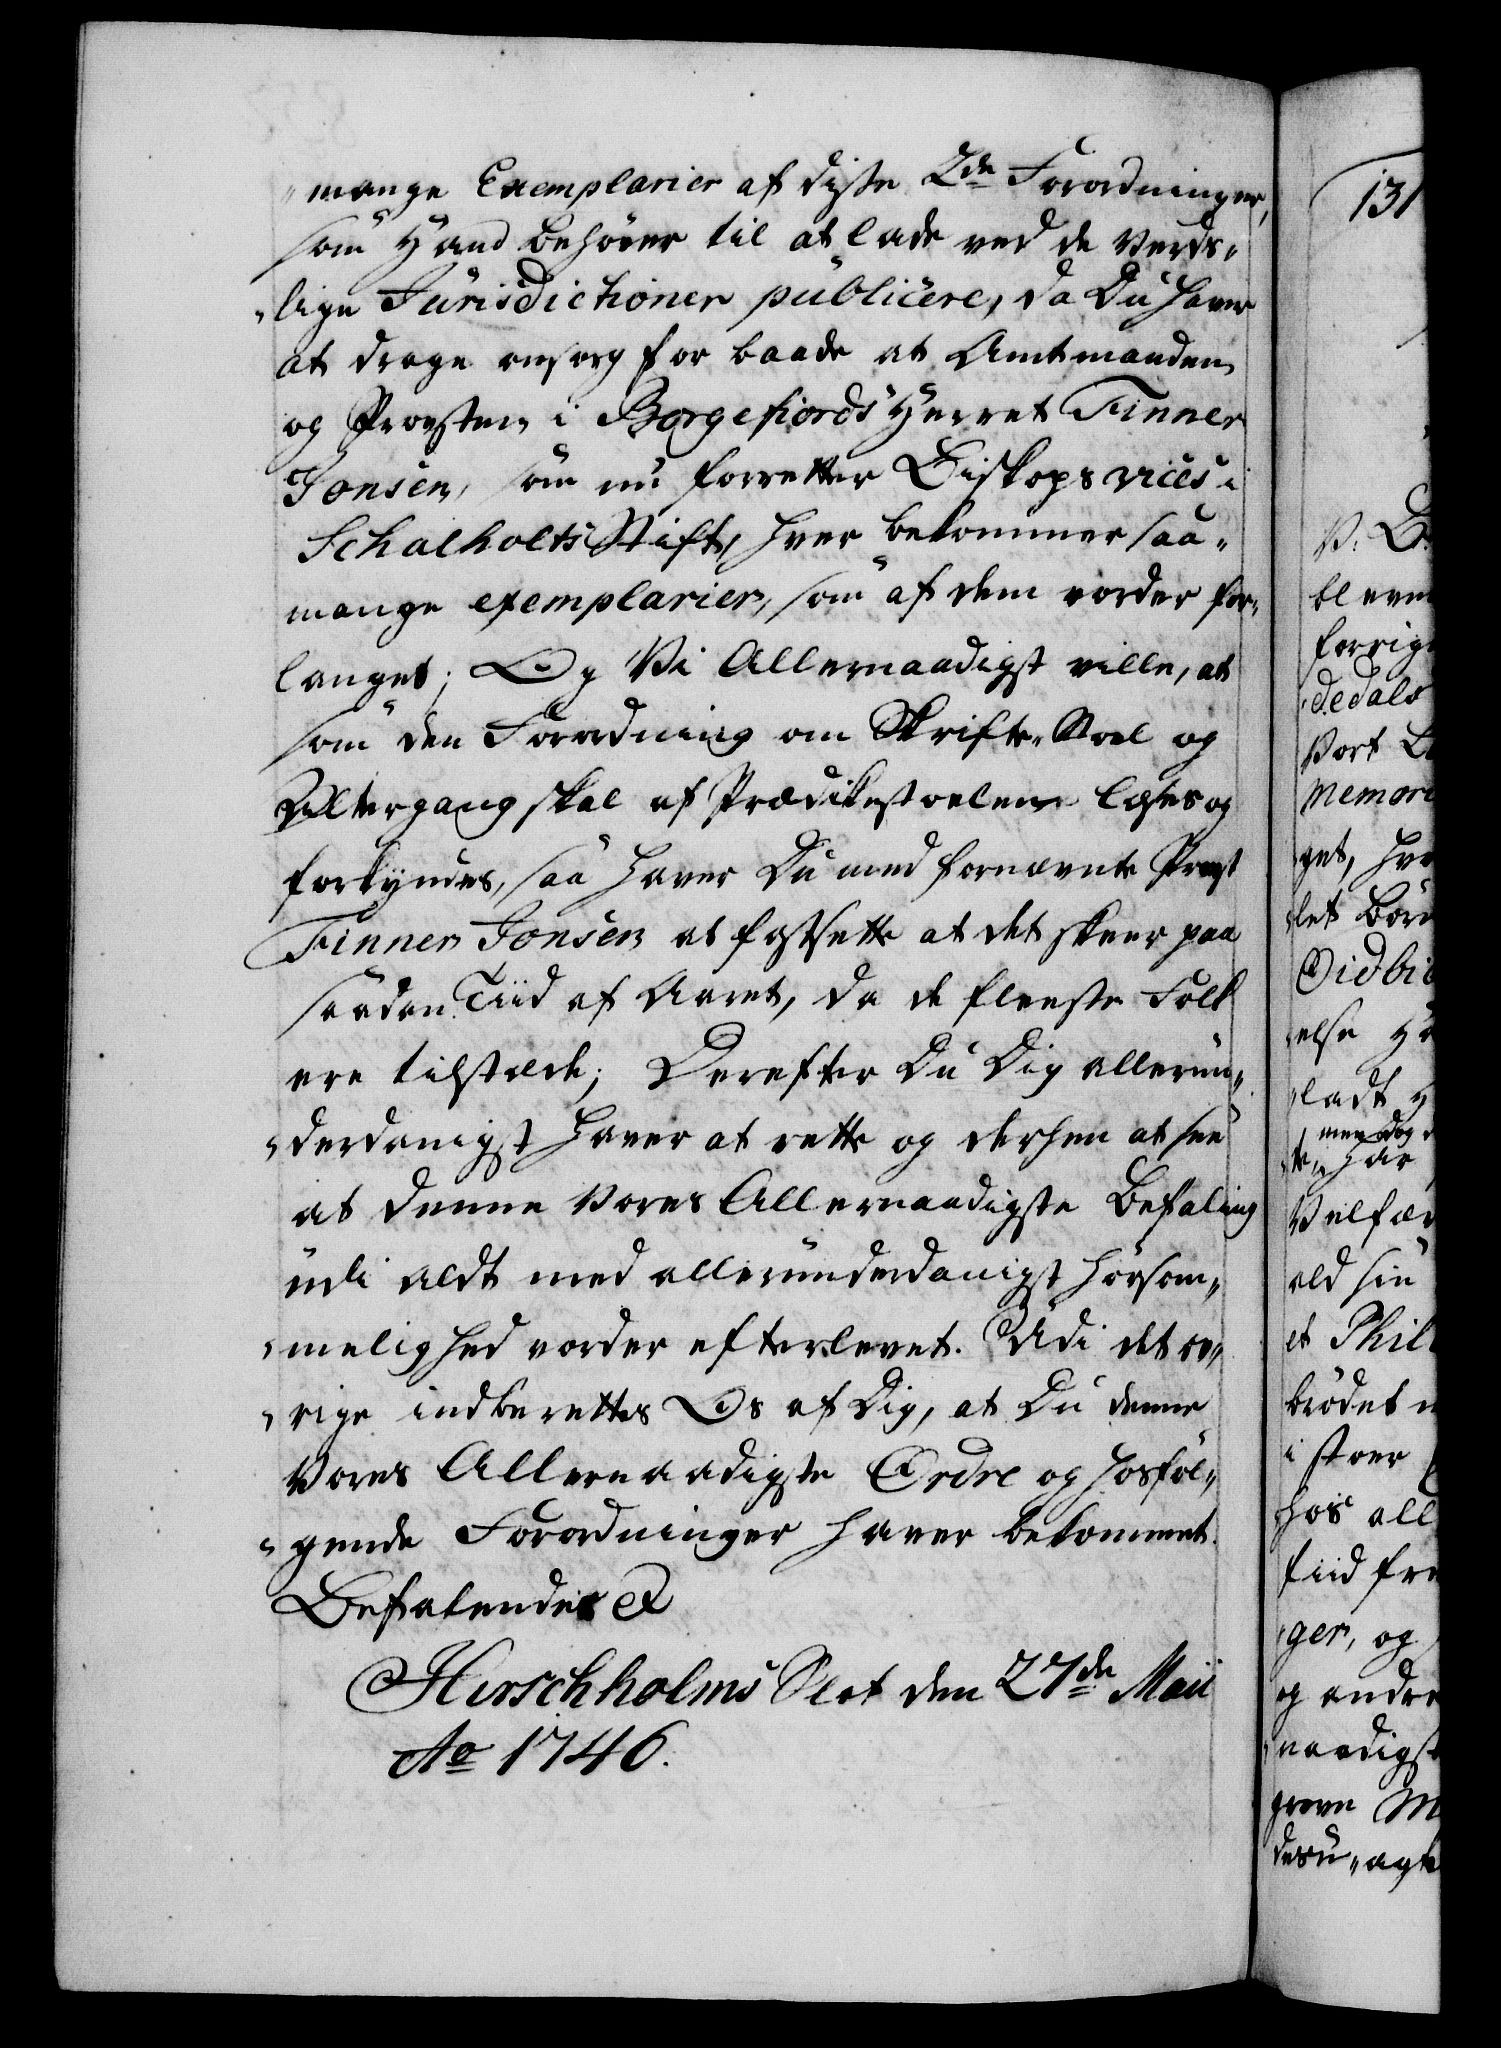 mange Exemplarier af disse 2de Forordninger,
som Hand behøver til at lade ved de Verds-
lige Jurisdictioner publicere, da Du haver
at drage omsorg for baade at Amtmanden
og Provsten i Borgefiords Herret Finner
Jonsen, som nu forretter Biskops vices i
Schalholts Stift, hver bekommer saa-
mange exemplarier, som af dem vorder for-
langet; Og Vi Allernaadigst ville, at
som den Forordning om Skrifte-Stoel og
Altergang skal af Prædikestoelene læses og
forkyndes, saa haver Du med fornævnte Provst
Finner Jonsen at fastsette at det skeer paa
saadan Tiid af Aaret, da de fleeste Folk
ere tilstæde; Derefter Du Dig allerun-
derdanigst haver at rette og derhen at see
at denne Vores Allernaadigste Befaling
udi aldt med allerunderdanigst hørsom-
melighed vorder efterlevet. Udi det øv-
rige indberettes Os af Dig, at Du denne
Vores Allernaadigste Ordre og hosføl-
gende Forordninger haver bekommet.
Befalendes &
Hirschholms Slot den 27de Maii
Ao 1746.
131
V: G.
bleven
forrige
dedals
Vort
Memori
get, hvo
let
else
ladt
men dog
Velfær
ald sin
et Phil
brødet
i stoer
hos all
ger, og
og andre
naadigst